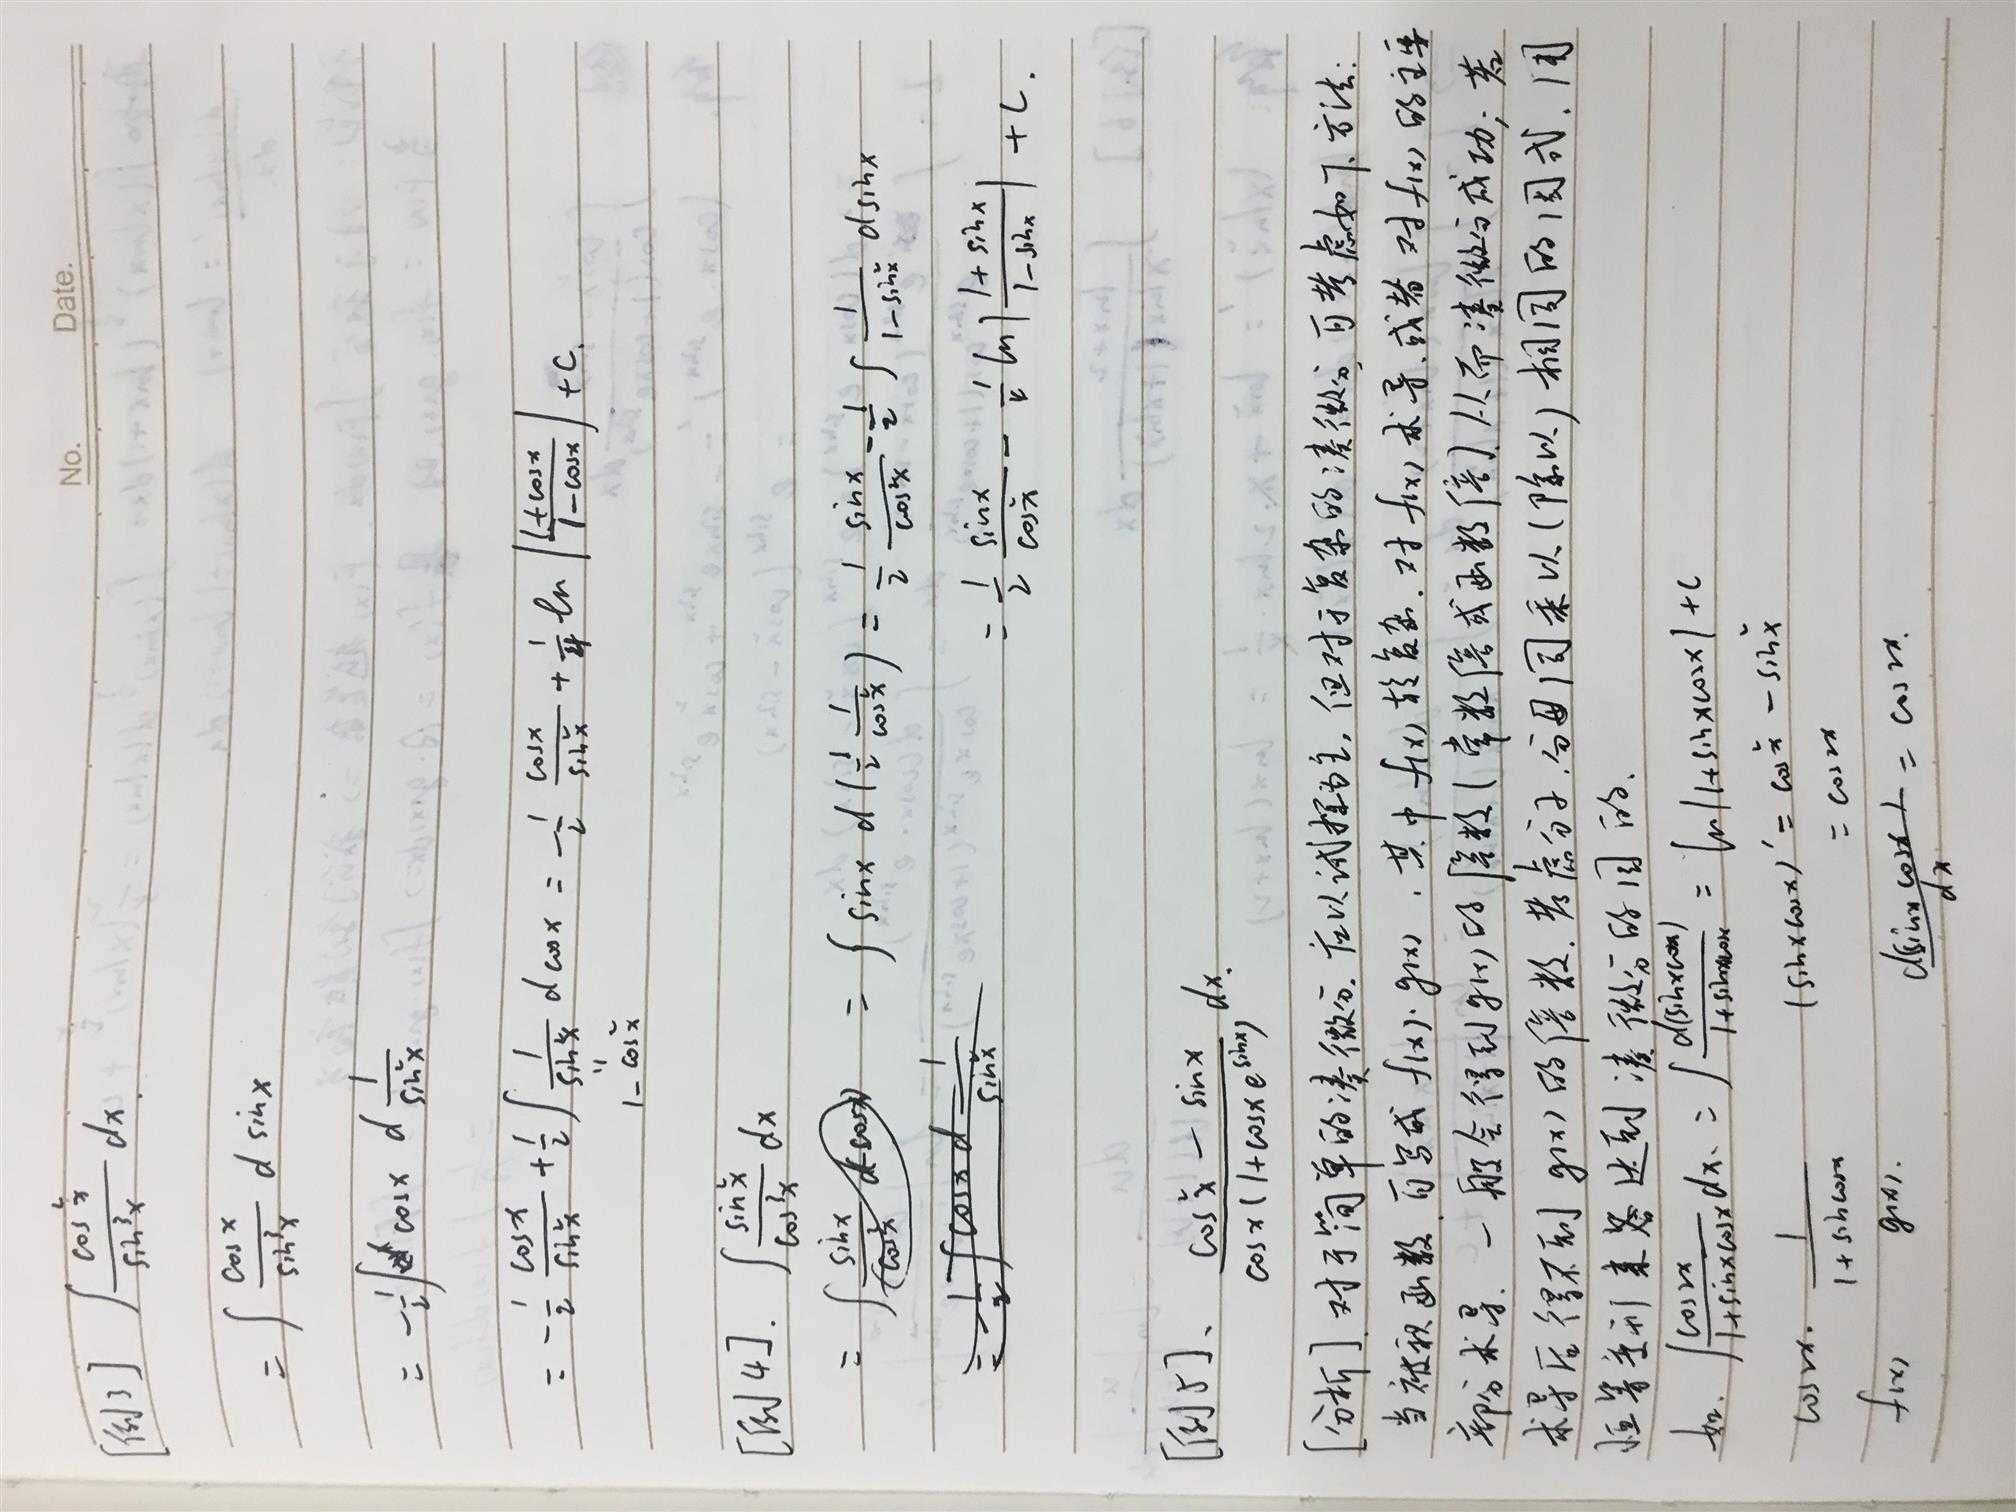 No. Date.
[例3] ∫ cos²x/sin³x dx
= ∫ cosx/sin³x d sinx
= -1/2 ∫ cosx d 1/sin²x
= -1/2 cosx/sin²x + 1/2 ∫ 1/sin²x d cosx = -1/2 cosx/sin²x + 1/4 ln |(1+cosx)/(1-cosx)| + C.
1-cos²x
[例4]. ∫ sin²x/cos³x dx
= ∫ sinx d(1/2 1/cos²x) = 1/2 sinx/cos²x - 1/2 ∫ 1/(1-sin²x) d sinx
= 1/2 sinx/cos²x - 1/4 ln |(1+sinx)/(1-sinx)| + C.
[例5]、 ∫ (cos²x - sinx)/(cosx(1+cosx e^sinx)) dx.
[分析] 对于简单的凑微分. 应以试探为主, 但对于复杂的凑微分, 可考虑如下方法:
当被积函数可写成 f(x)·g(x), 其中 f(x) 较复杂. 对 f(x) 求导、或者对 f(x) 的主要
部分求导. 一般会得到 g(x) 的倍数 (常数倍或函数倍) 从而凑微分成功; 若
求导后得不到 g(x) 的倍数. 考虑分子.分母同乘以(除以)相同的因式. 用
恒等变形来达到凑微分的目的.
如. ∫ cos2x/(1+sinxcosx) dx. = ∫ d(sinxcosx)/(1+sinxcosx) = ln|1+sinxcosx| + C
cos2x. 1/(1+sinxcosx) (sinxcosx)' = cos²x - sin²x
= cos2x
f(x) g(x). d(sinxcosx)/dx = cos2x.